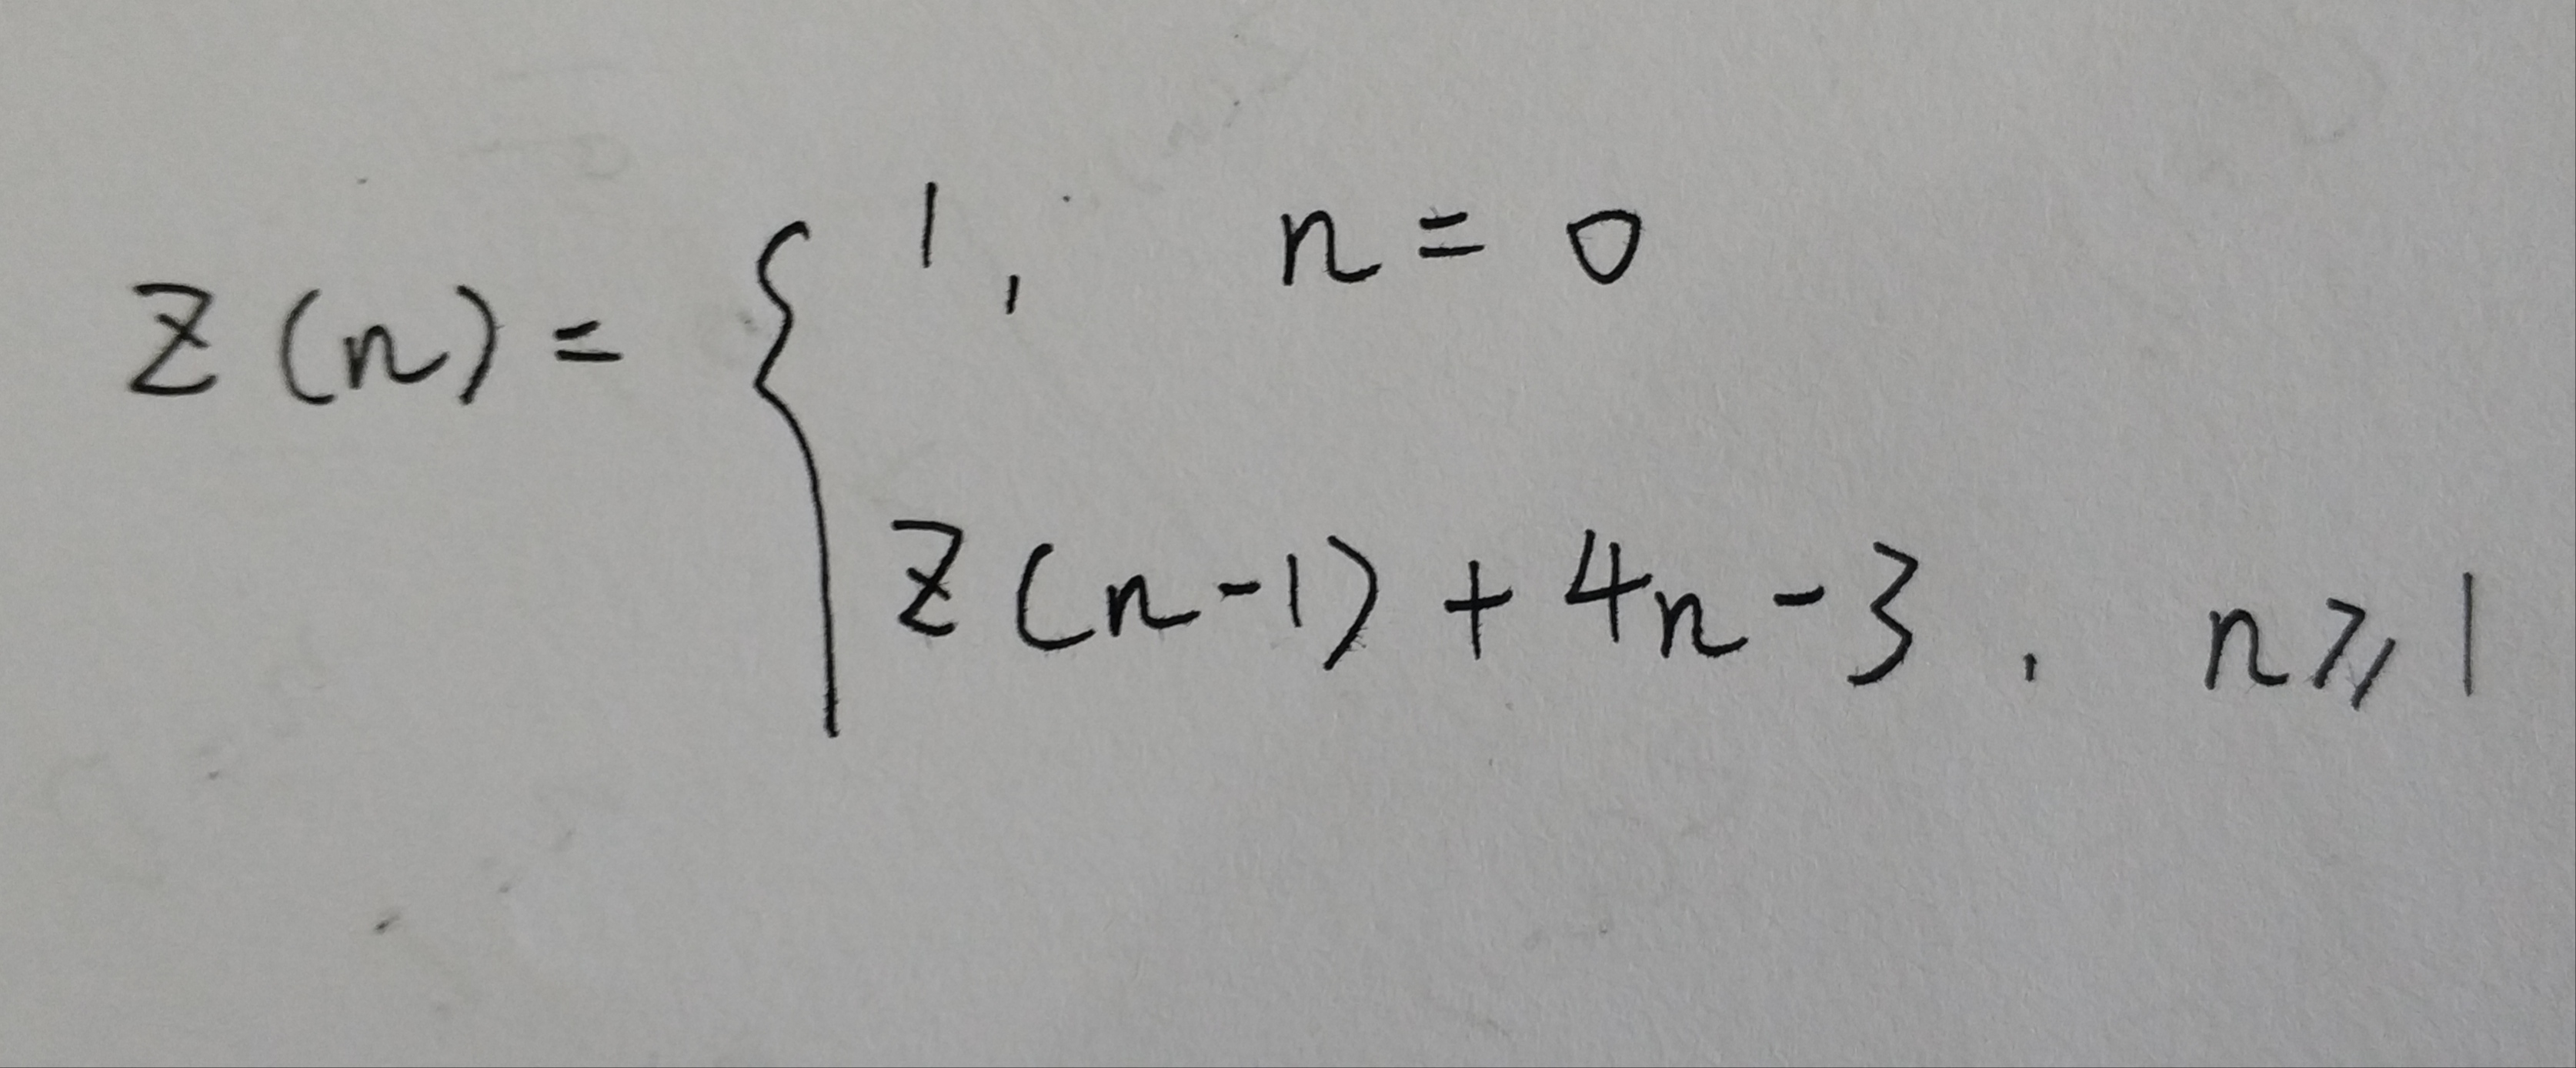 Z(n) = { 1, n = 0
Z(n-1) + 4n - 3, n ⩾ 1